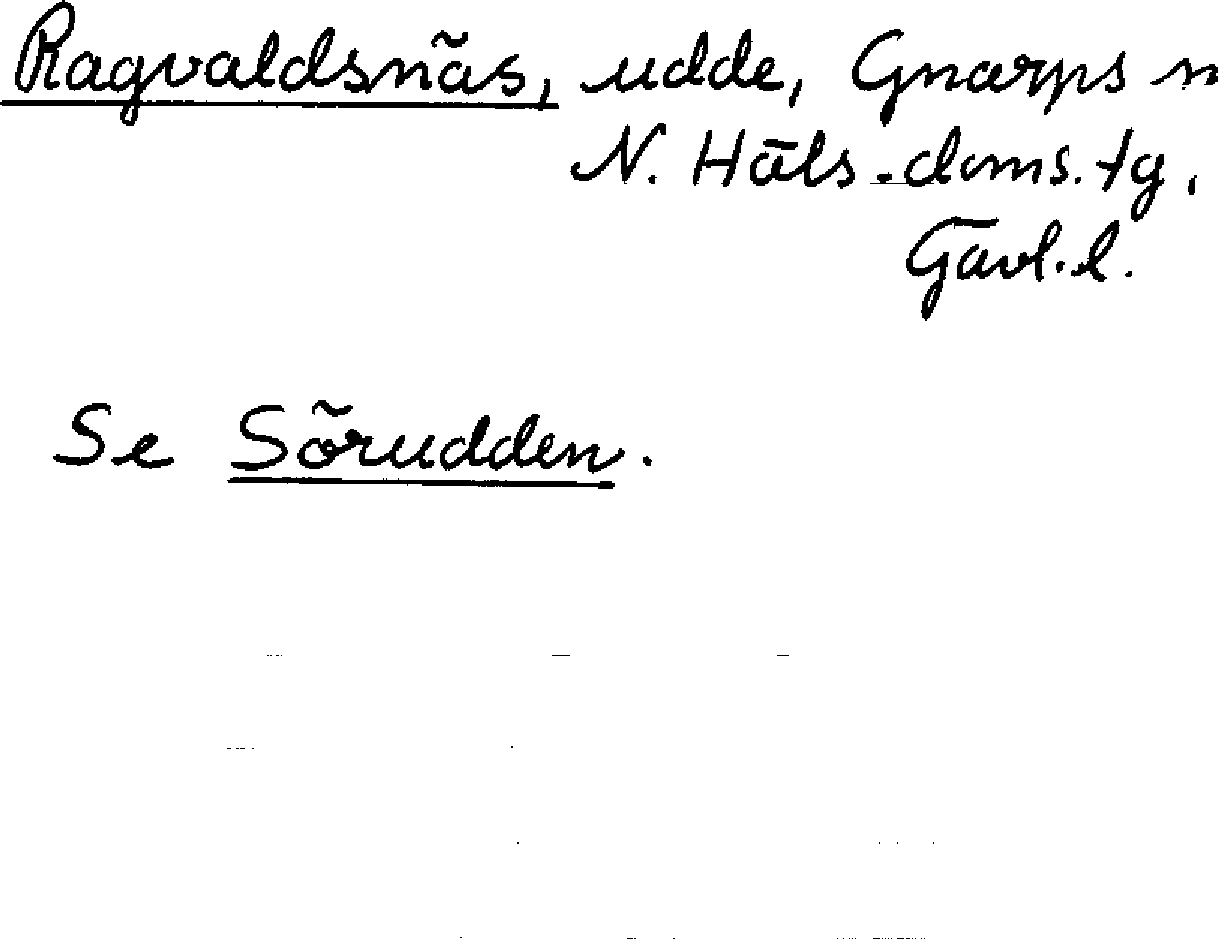 Ragvaldsnäs, udde, Gnarps
N. Häls. doms. tg,
Gävl. l.
Se Sörudden.